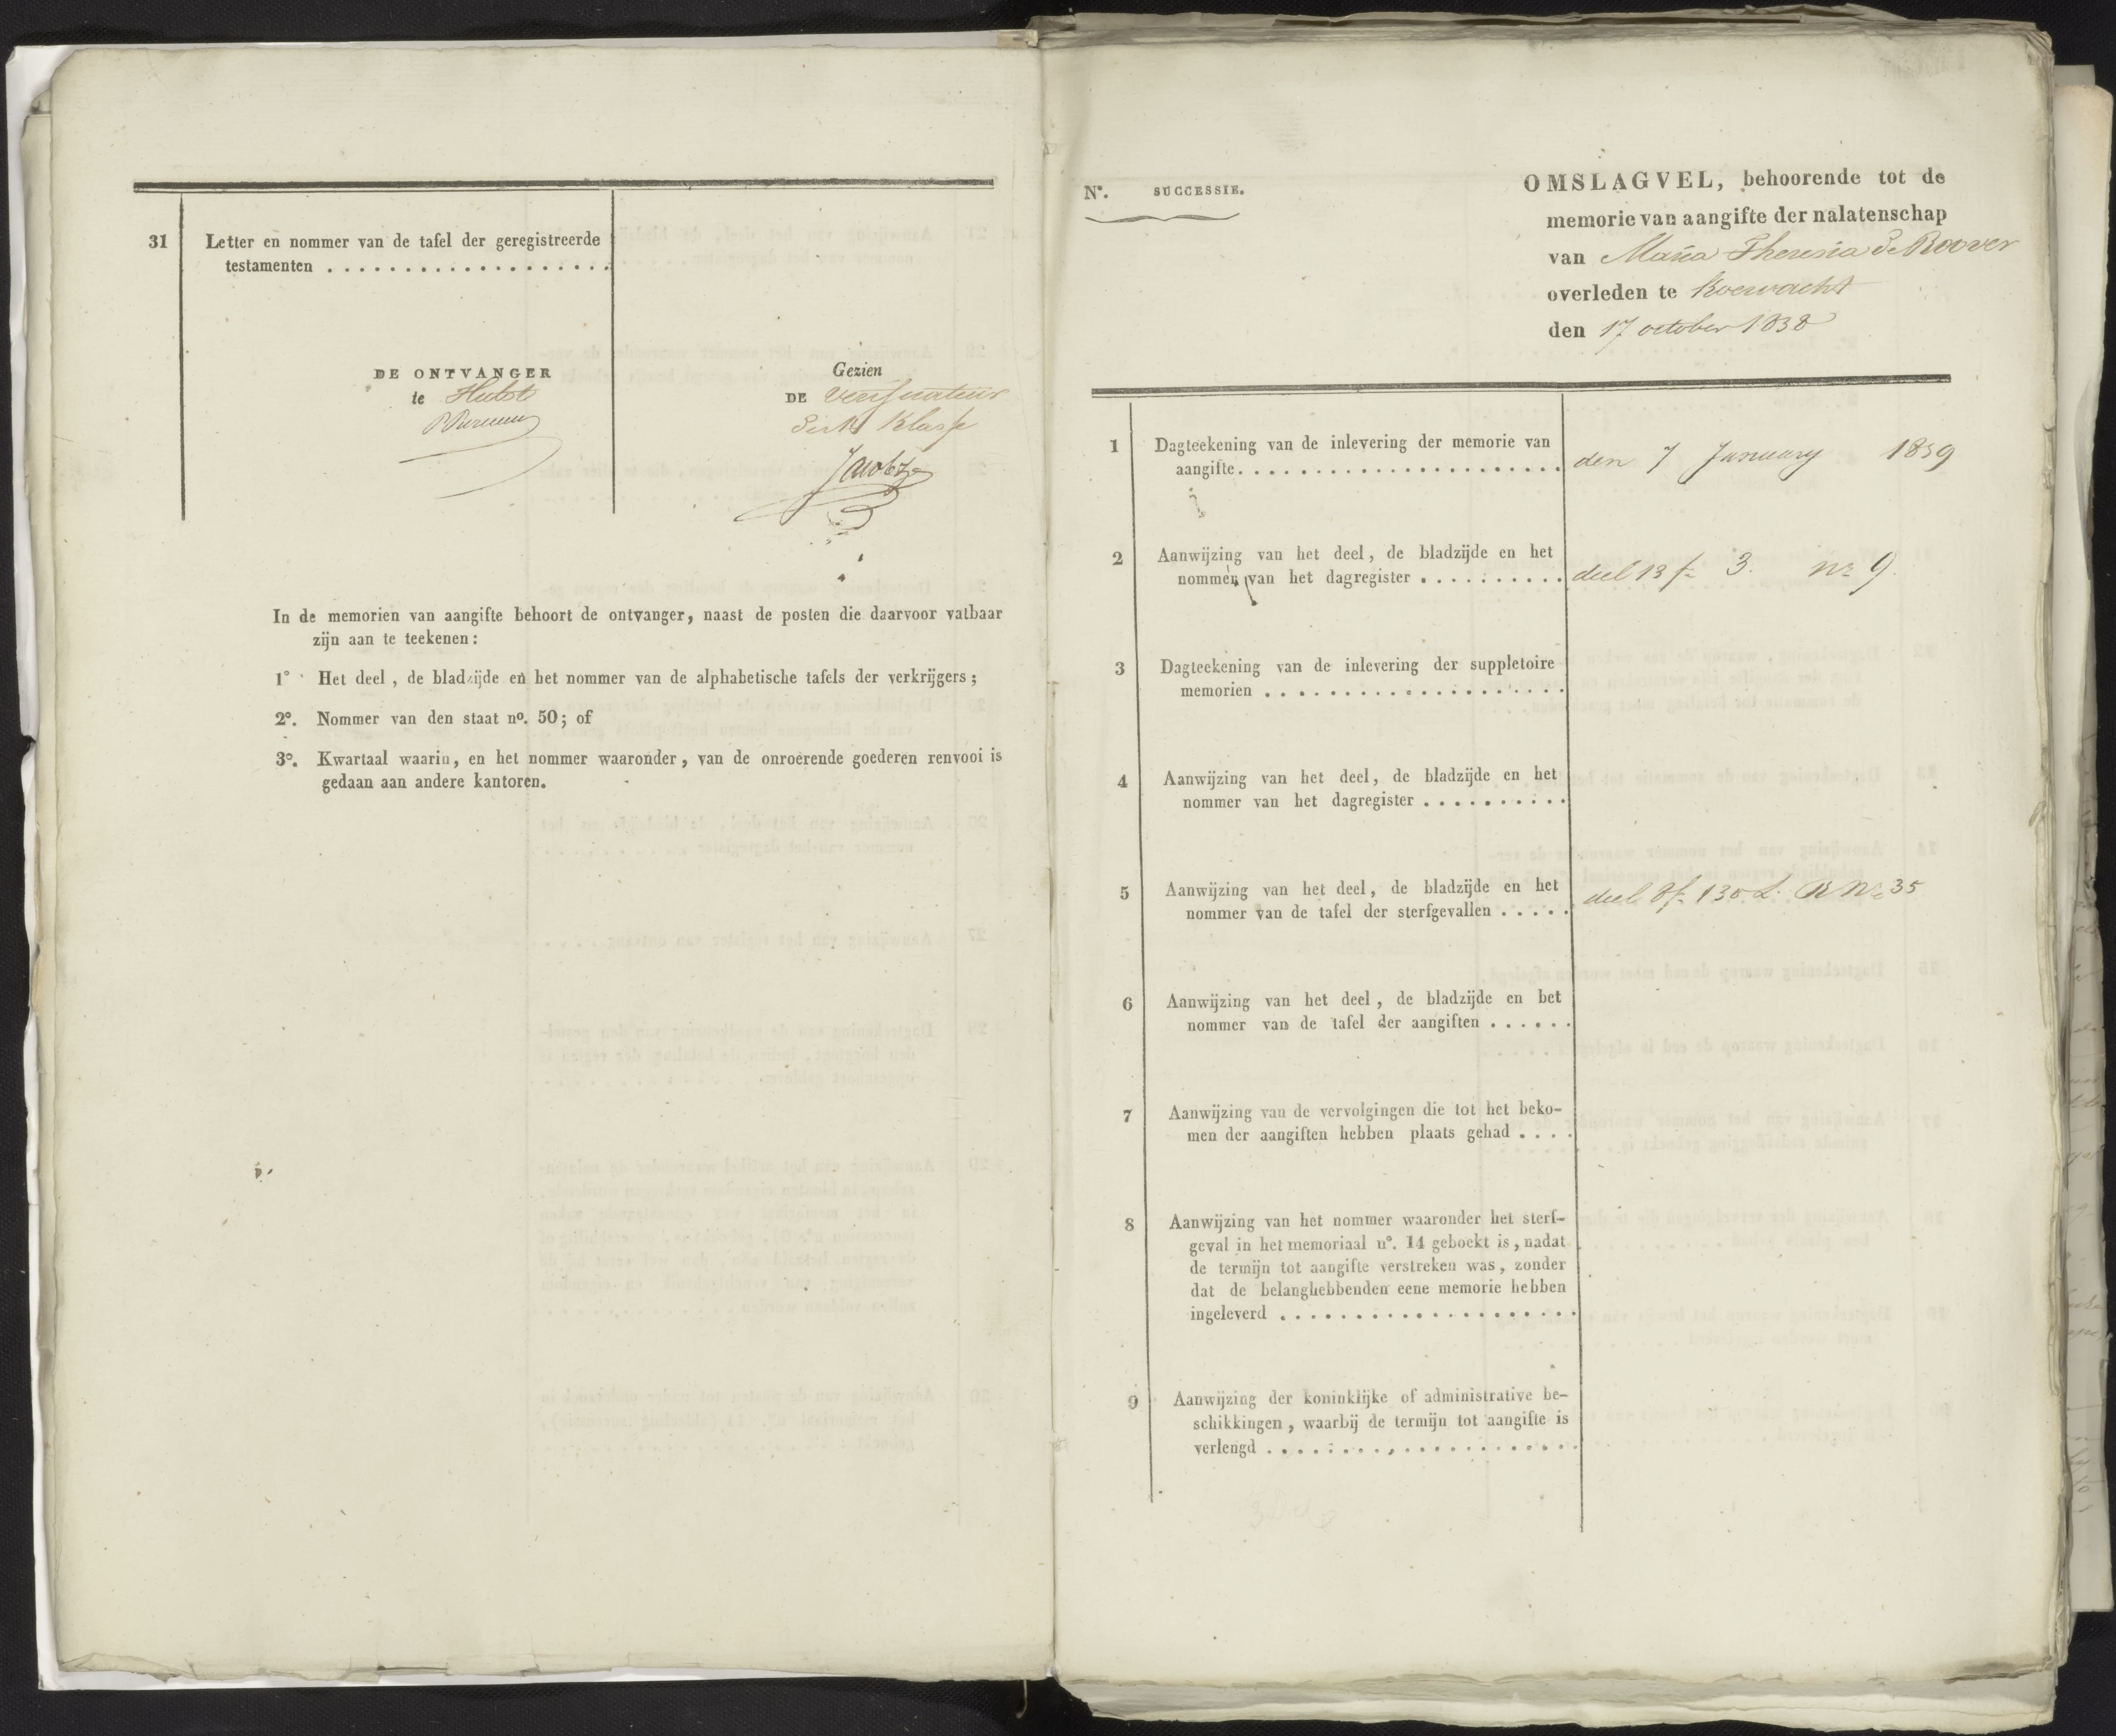 31 Letter en nommer van de tafel der geregistreerde
testamenten . . . . . . . . . . . . . . . . . . .
DE ONTVANGER
te Hulst
Gezien
DE Verificateur
Klasse
In de memorien van aangifte behoort de ontvanger, naast de posten die daarvoor vatbaar
zijn aan te teekenen:
1° Het deel, de bladzijde en het nommer van de alphabetische tafels der verkrijgers;
2°. Nommer van den staat n°. 50; of
3°. Kwartaal waarin, en het nommer waaronder, van de onroerende goederen renvooi is
gedaan aan andere kantoren.
N°. SUCCESSIE.
OMSLAGVEL, behoorende tot de
memorie van aangifte der nalatenschap
van Maria Theresia De Roover
overleden te Koewacht
den 17 october 1838
1 Dagteekening van de inlevering der memorie van
aangifte. . . . . . . . . . . . . . . . . . . . . . den 7 January 1839
2 Aanwijzing van het deel, de bladzijde en het
nommer van het dagregister . . . . . . . . . . deel 13 f° 3. n° 9.
3 Dagteekening van de inlevering der suppletoire
memorien . . . . . . . . . . . . . . . . . . . .
4 Aanwijzing van het deel, de bladzijde en het
nommer van het dagregister . . . . . . . . . .
5 Aanwijzing van het deel, de bladzijde en het
nommer van de tafel der sterfgevallen . . . . . deel 8 f° 130 L. R N° 35
6 Aanwijzing van het deel, de bladzijde en het
nommer van de tafel der aangiften . . . . . .
7 Aanwijzing van de vervolgingen die tot het beko-
men der aangiften hebben plaats gehad . . . .
8 Aanwijzing van het nommer waaronder het sterf-
geval in het memoriaal n°. 14 geboekt is, nadat
de termijn tot aangifte verstreken was, zonder
dat de belanghebbenden eene memorie hebben
ingeleverd . . . . . . . . . . . . . . . . . . .
9 Aanwijzing der koninklijke of administrative be-
schikkingen, waarbij de termijn tot aangifte is
verlengd . . . . . . . . . . . . . . . . . . . .